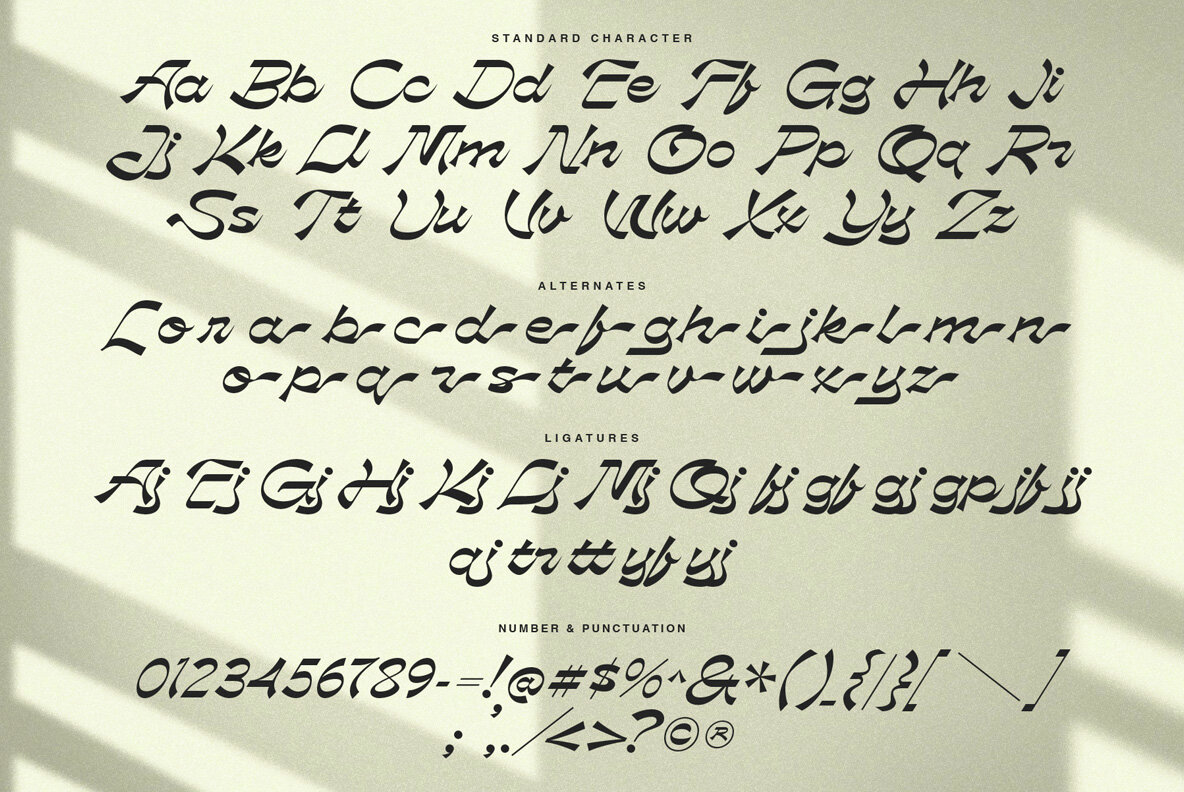 STANDARD CHARACTER
Aa Bb Cc Dd Ee Ff Gg Hh Ii
Jj Kk Ll Mm Nn Oo Pp Qq Rr
Ss Tt Uu Vv Ww Xx Yy Zz
ALTERNATES
L o r a b c d e f g h i j k l m n
o p q r s t u v w x y z
LIGATURES
Aj Ej Gj Hj Kj Lj Mj Qj fj gb gj gp jb jj
qj tr tt yb yj
NUMBER & PUNCTUATION
0123456789-=!@#$%^&*()_{|}[\]
; ‚ ,./<>?©®